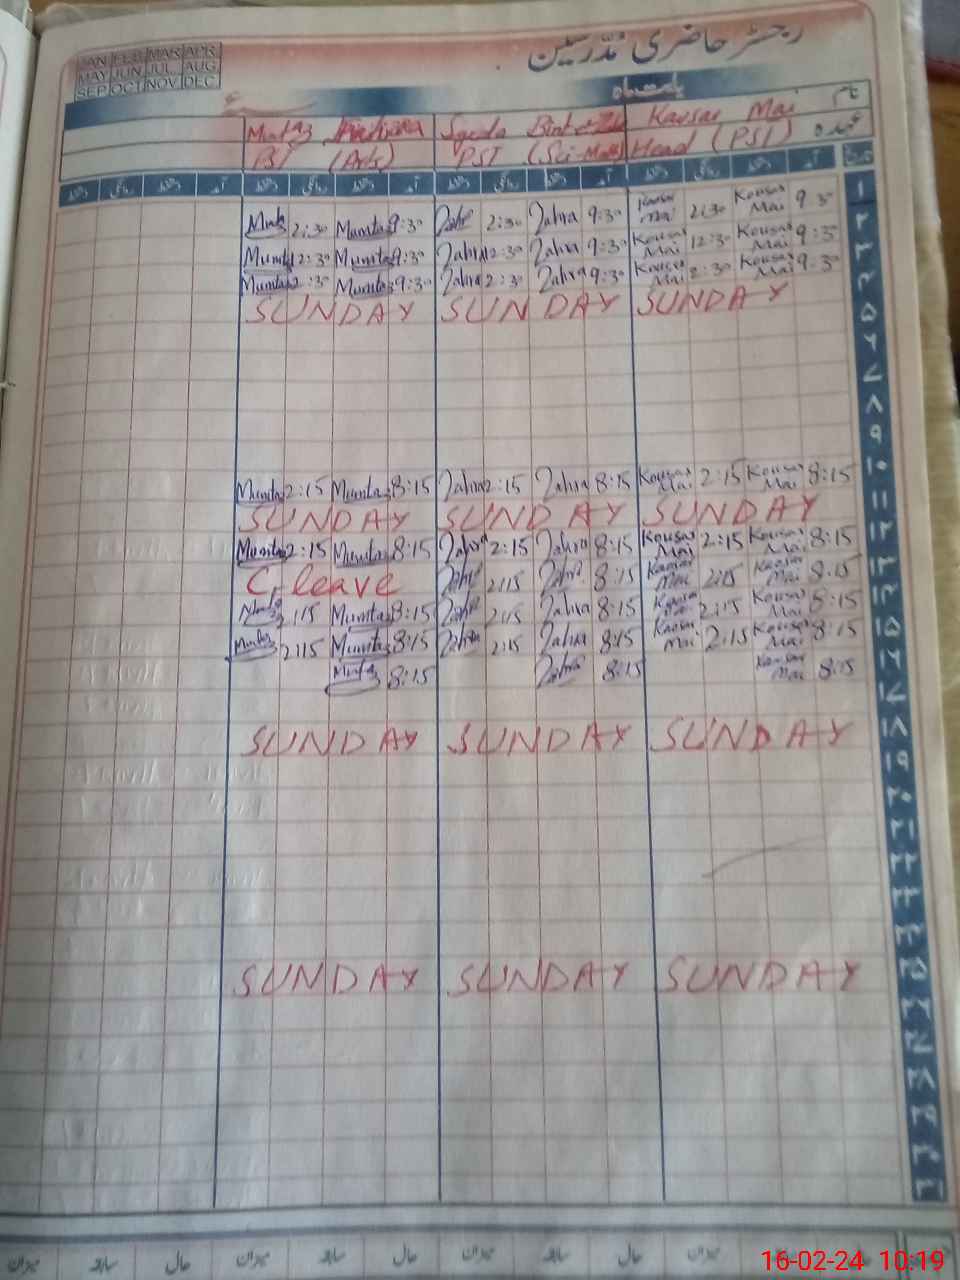 رجسٹر حاضری مدرسین
JAN FEB MAR APR
MAY JUN JUL AUG
SEP OCT NOV DEC
نام Kausar Mai
عہدہ Head (PST) PST (Sci-Math) PST (Arts)
۱ 9:30 Kousar Mai 2:30 Kousar Mai 9:30 Zahra 2:30 Zahra 9:30 Mumtaz 2:30
۲ 9:30 Kousar Mai 12:30 Kousar Mai 9:30 Zahra 12:30 Zahra 9:30 Mumtaz 12:30 Mumtaz
۳ 9:30 Kousar Mai 2:30 Kousar Mai 9:30 Zahra 2:30 Zahra 9:30 Mumtaz 2:30 Mumtaz
۴ SUNDAY SUNDAY SUNDAY
۵
۶
۷
۸
۹
۱۰ 8:15 Kousar Mai 2:15 Kousar Mai 8:15 Zahra 2:15 Zahra 8:15 Mumtaz 2:15 Mumtaz
۱۱ SUNDAY SUNDAY SUNDAY
۱۲ 8:15 Kousar Mai 2:15 Kousar Mai 8:15 Zahra 2:15 Zahra 8:15 Mumtaz 2:15 Mumtaz
۱۳ 8:15 Kousar Mai 2:15 Kousar Mai 8:15 Zahra 2:15 Zahra C, leave
۱۴ 8:15 Kousar Mai 2:15 8:15 Zahra 2:15 Zahra 8:15 Mumtaz 2:15 Mumtaz
۱۵ 8:15 Kousar Mai 2:15 Kousar Mai 8:15 Zahra 2:15 Zahra 8:15 Mumtaz 2:15 Mumtaz
۱۶ 8:15 Kousar Mai 8:15 Zahra 8:15 Mumtaz
۱۷
۱۸ SUNDAY SUNDAY SUNDAY
۱۹
۲۰
۲۱
۲۲
۲۳
۲۴
۲۵ SUNDAY SUNDAY SUNDAY
۲۶
۲۷
۲۸
۲۹
۳۰
۳۱
میزان سابقہ حال میزان سابقہ حال میزان سابقہ حال میزان
16-02-24 10:19